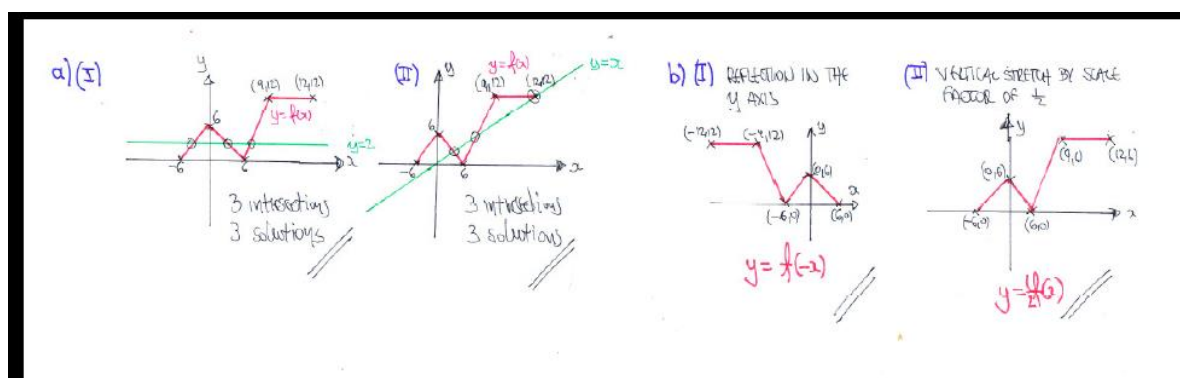 a) (I)
y
(9,12) (12,12)
y=f(x)
6
y=2
-6 6 x
3 intersections
3 solutions
(II)
y
y=f(x)
y=x
(9,12) (12,12)
6
-6 6 x
3 intersections
3 solutions
b) (I) REFLECTION IN THE
Y AXIS
(-12,12) (-9,12) y
(0,6)
x
(-6,0) (6,0)
y=f(-x)
(II) VERTICAL STRETCH BY SCALE
FACTOR OF 1/2
y
(9,6) (12,6)
(0,6)
(-6,0) (6,0) x
y=1/2f(x)